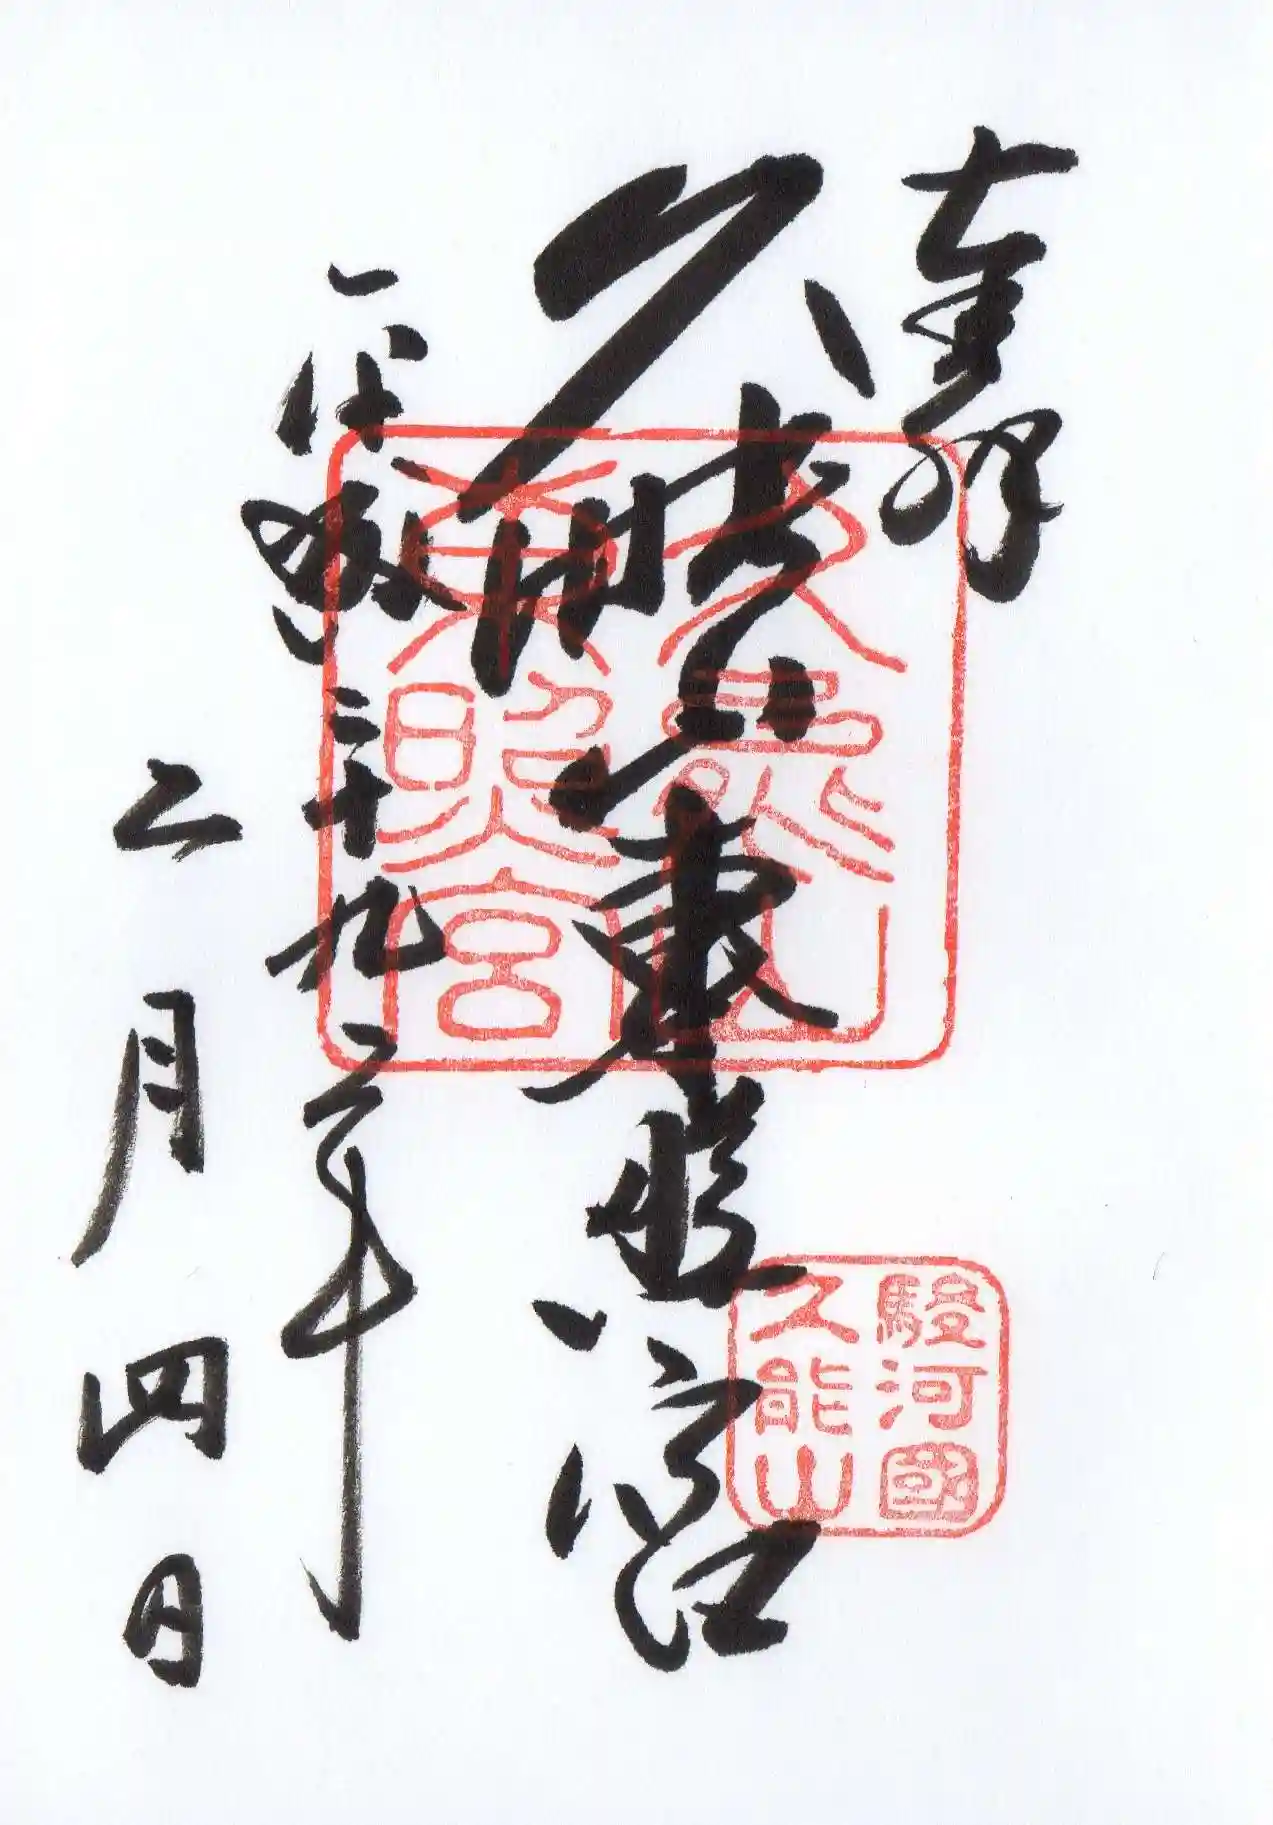 奉拝
久能山東照宮
平成二十九年
二月四日
久能山
東照宮
駿河國
久能山